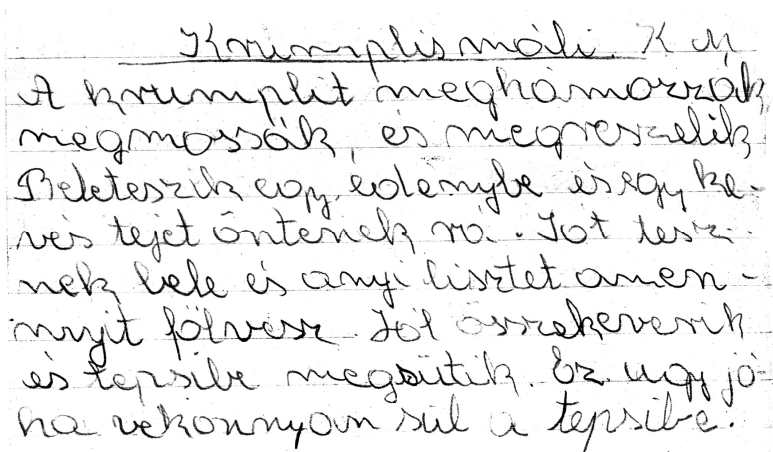 Krumplis máli. K M
A krumplit meghámozzák
megmossák, és megreszelik
Beleteszik egy edénybe és egy ke-
vés tejet öntenek rá. Sót tesz-
nek bele és anyi lisztet amen-
nyit fölvesz. Jól összekeverik
és tepsibe megsütik. Ez ugy jó
ha vékonnyan sül a tepsibe.